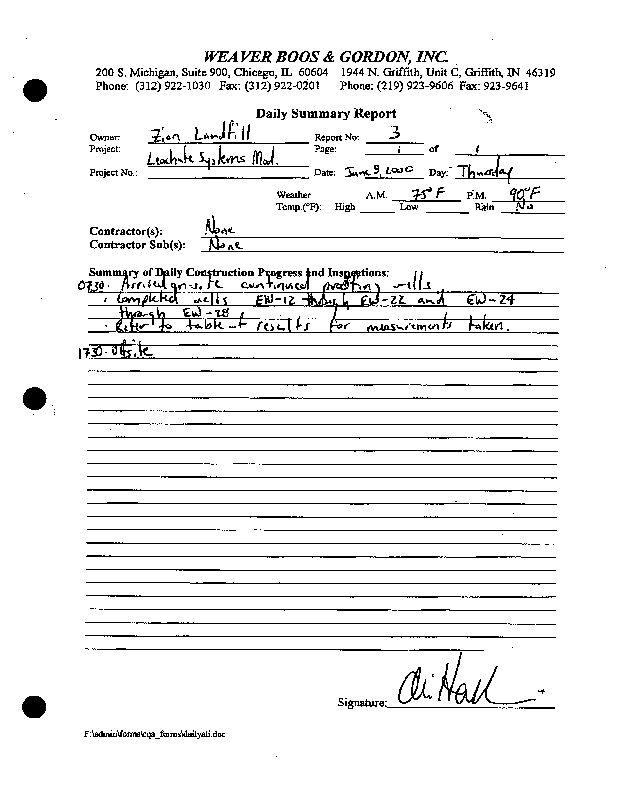 WEAVER BOOS & GORDON, INC.
200 S. Michigan, Suite 900, Chicago, IL 60604 1944 N. Griffith, Unit C, Griffith, IN 46319
Phone: (312) 922-1030 Fax: (312) 922-0201 Phone: (219) 923-9606 Fax: 923-9641
Daily Summary Report
Owner: Zion Landfill Report No: 3
Project: Leachate Systems Mod. Page: 1 of 1
Project No.: Date: June 2000 Day: Thursday
Weather A.M. 75°F P.M. 90°F
Temp.(°F): High Low Rain No
Contractor(s): None
Contractor Sub(s): None
Summary of Daily Construction Progress and Inspections:
0730- Arrived on-site continued wells.
· Completed wells EW-12 through EW-22 and EW-24
through EW-28
· Refer to table of results for measurements taken.
1730- Offsite
Signature:
F:\admin\forms\cqa_forms\dailyali.doc